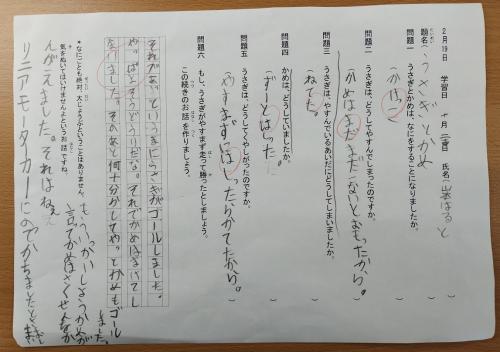 2月19日　学習日　十月三百　氏名（
題名（うさぎとかめ
問題一　うさぎとかめは、なにをすることになりましたか。
（かけっこ　）
問題二　うさぎは、どうしてやすんでしまったのですか。
（かめはまだまだこないとおもったから。　）
問題三　うさぎは、やすんでいるあいだにどうしてしまいましたか。
（ねてた。　）
問題四　かめは、どうしていましたか。
（ずーとはしった　）
問題五　うさぎは、どうしてくやしがったのですか。
（やすまずにはしったらかてたから。　）
問題六　もし、うさぎがやすまず走って勝ったとしましょう。
この続きのお話を作りましょう。
それがあいというまにうさぎがゴールしました。
やっぱそうどうりだな。それでかめはまけてし
なけました。そのあと何十分かしてやっとかめもゴール
ました。
＊なにごとも絶対、大じょうぶということはありません。
気をぬいてはいけませんよというお話ですね。
もういっかいしょうぶが
言ってかめはさくせんをか
んがえました。それはねぇ
リニアモーターカーにのてかちましたとさ